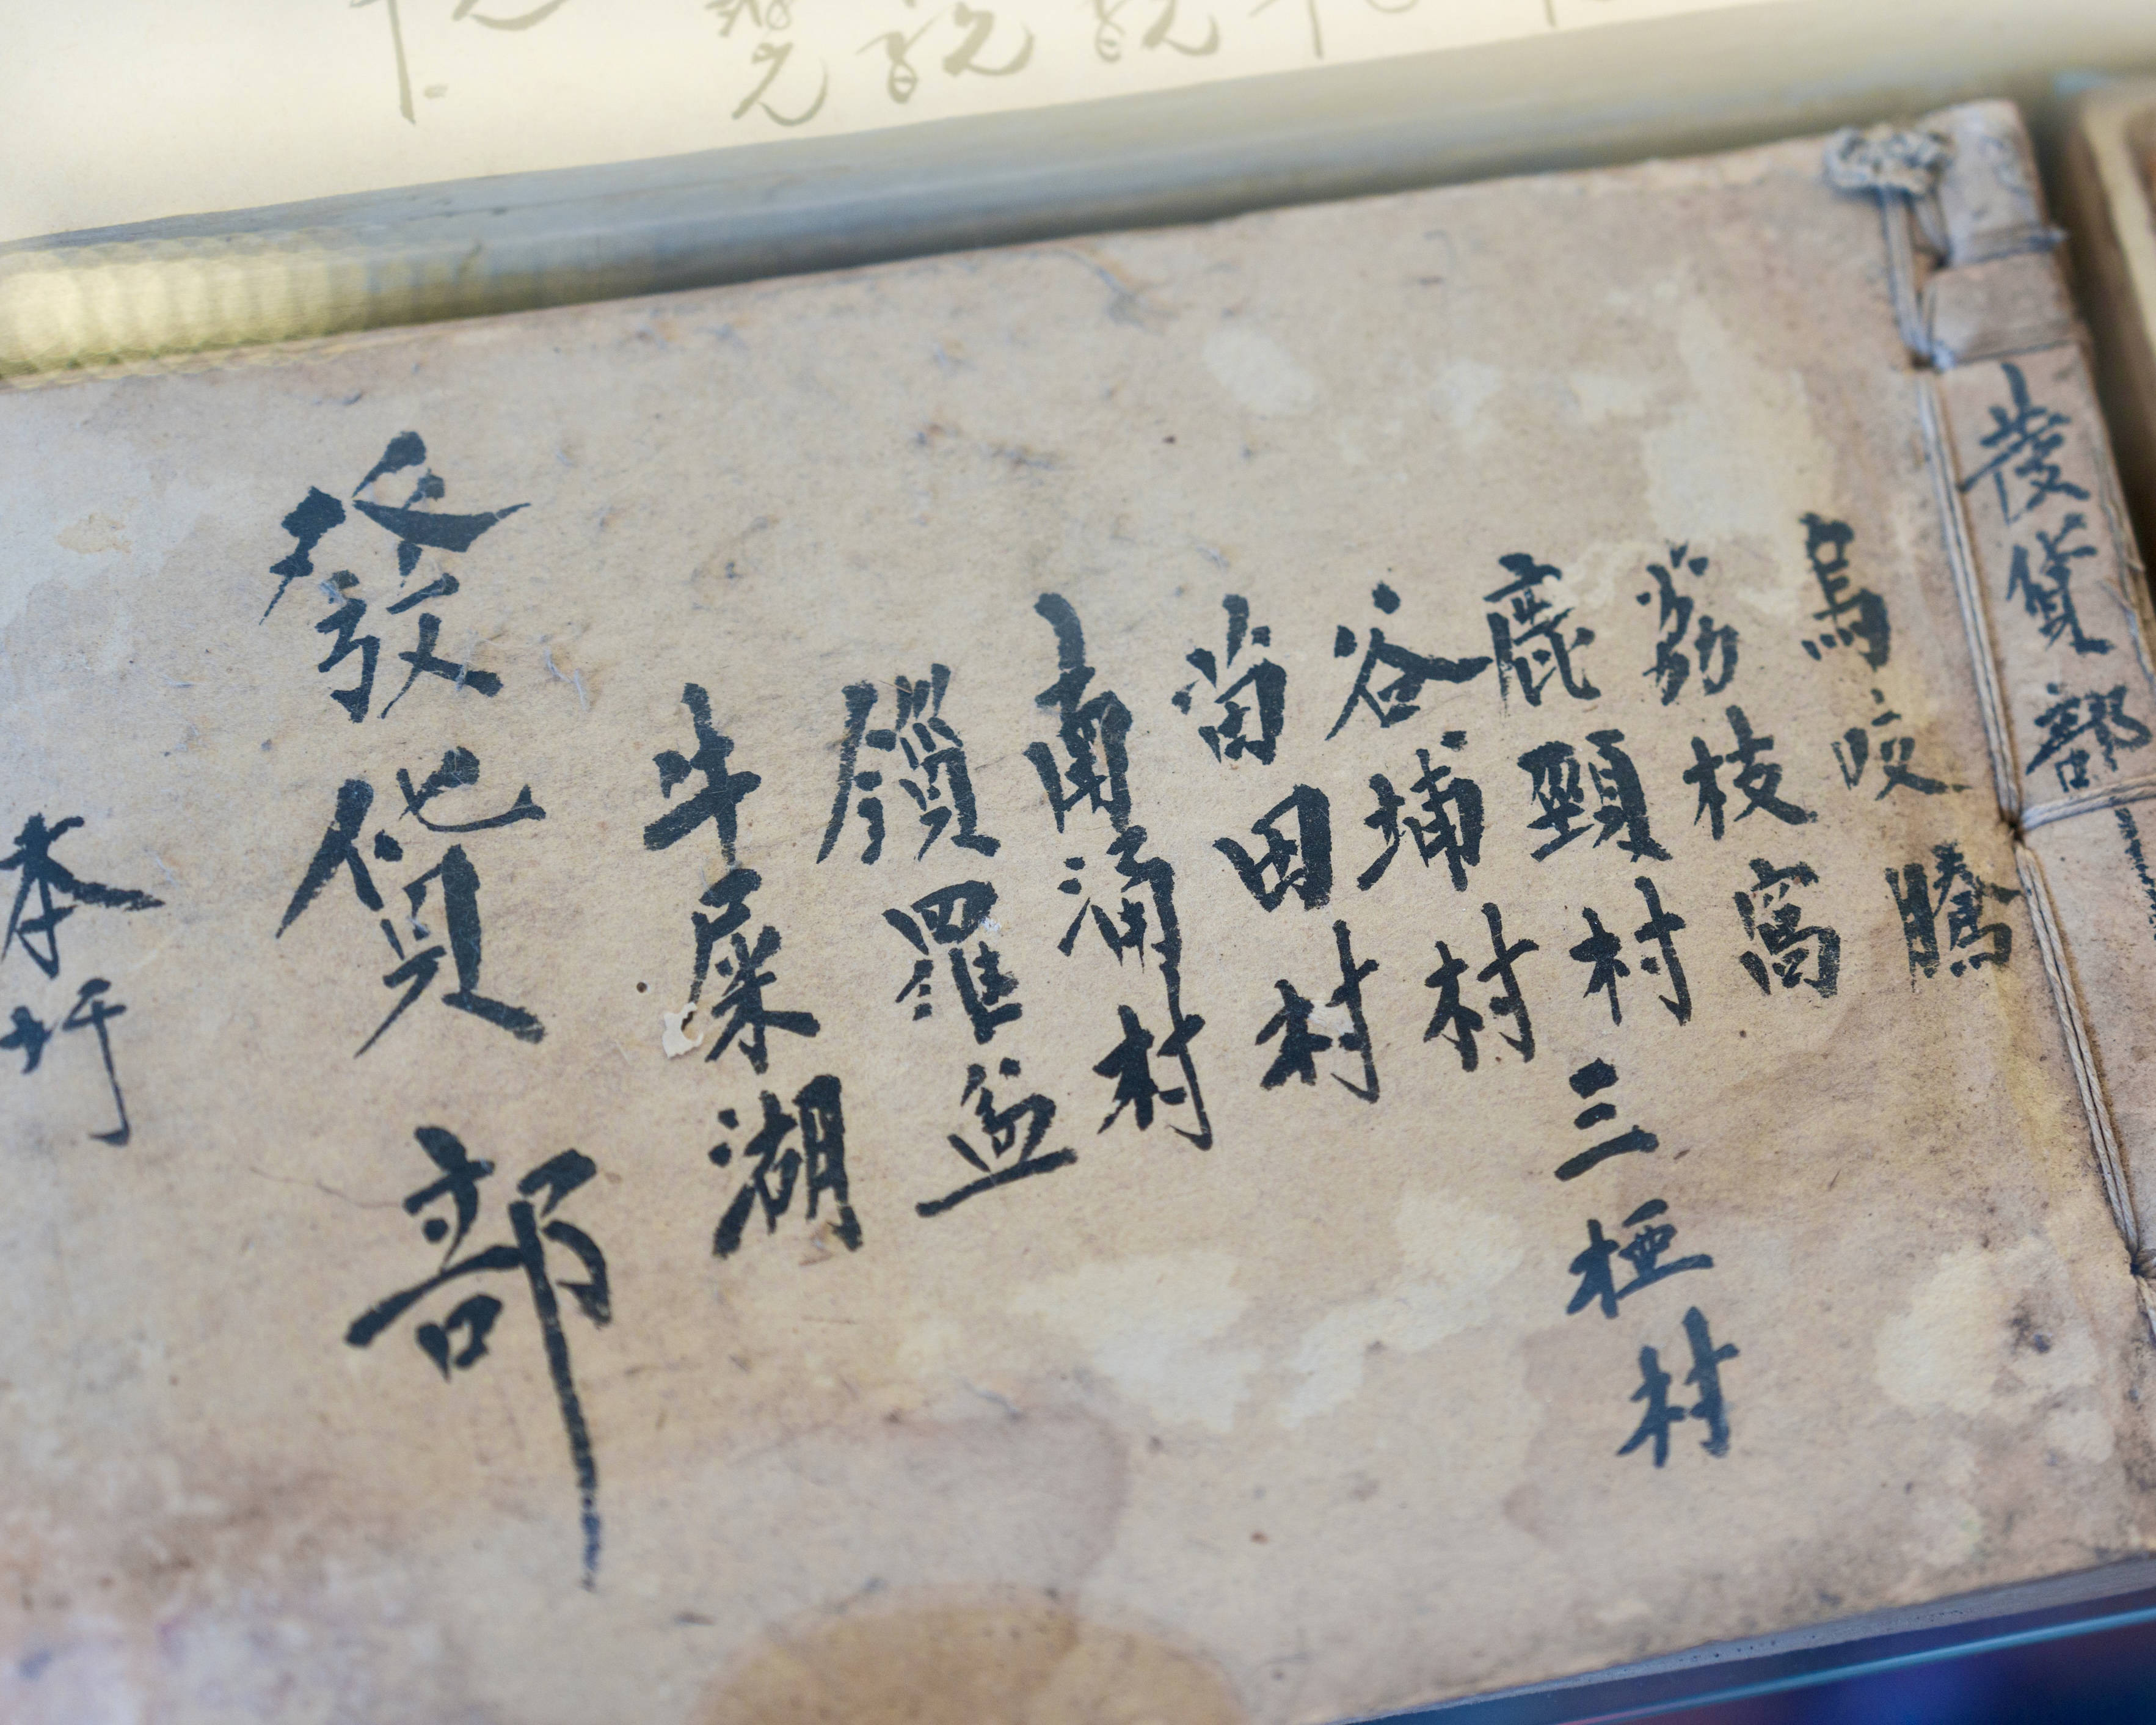 發貨部
烏咬騰
荔枝窩
鹿頸村三椏村
谷埔村
苗田村
南涌村
鎖羅盆
牛屎湖
發貨部
本圩